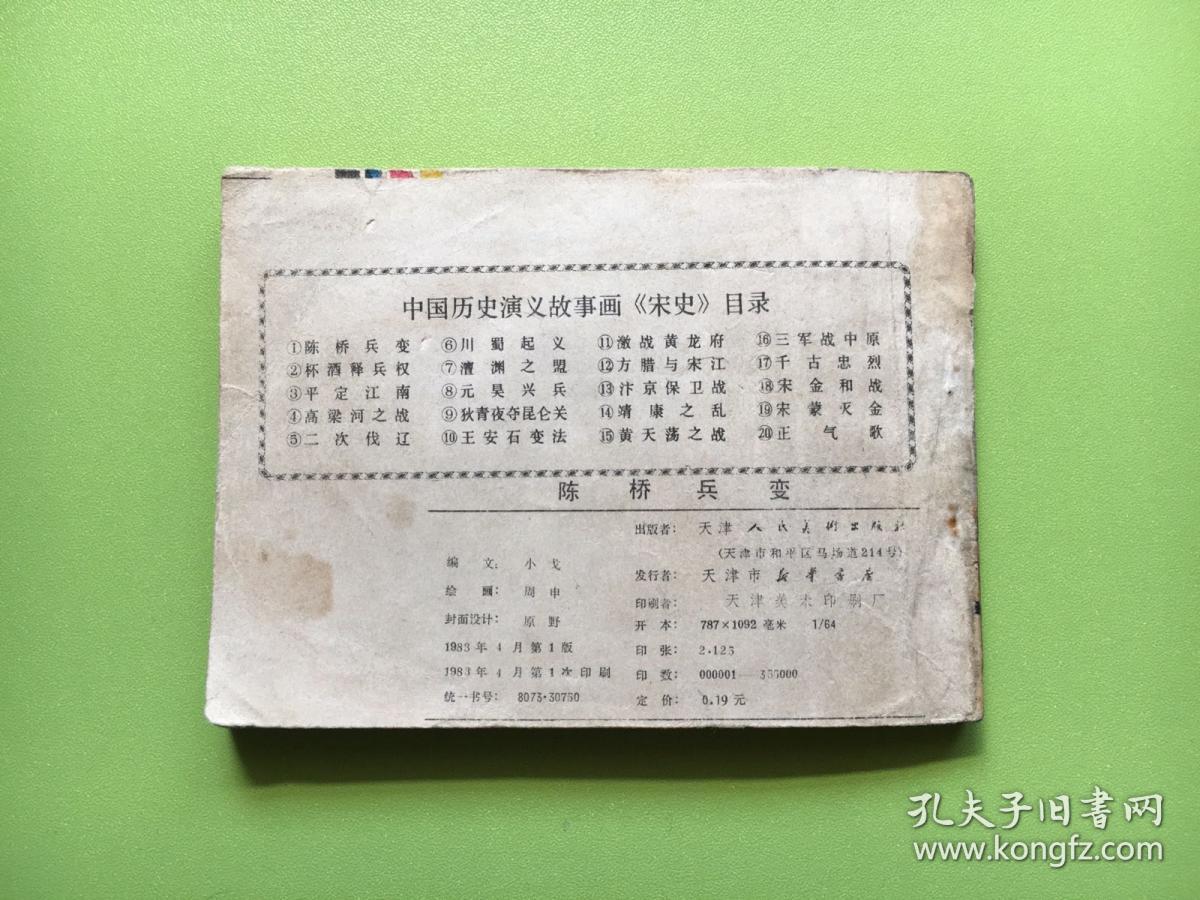 中国历史演义故事画《宋史》目录
①陈桥兵变 ⑥川蜀起义 ⑪激战黄龙府 ⑯三军战中原
②杯酒释兵权 ⑦澶渊之盟 ⑫方腊与宋江 ⑰千古忠烈
③平定江南 ⑧元昊兴兵 ⑬汴京保卫战 ⑱宋金和战
④高梁河之战 ⑨狄青夜夺昆仑关 ⑭靖康之乱 ⑲宋蒙灭金
⑤二次伐辽 ⑩王安石变法 ⑮黄天荡之战 ⑳正气歌
陈桥兵变
编文：小戈
绘画：周申
封面设计：原野
1983年4月第1版
1983年4月第1次印刷
统一书号：8073·30760
出版者：天津人民美術出版社
(天津市和平区马场道214号)
发行者：天津市新华書店
印刷者：天津美术印刷厂
开本：787×1092毫米 1/64
印张：2.125
印数：000001—
定价：0.19元
孔夫子旧书网
www.kongfz.com